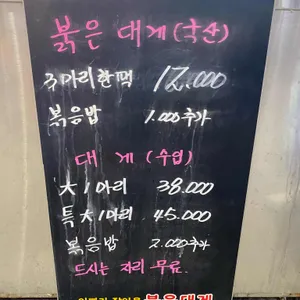 붉은 대게 (국산)
3마리한팩 12.000
볶음밥 1.000추가
대게 (수입)
大1마리 38.000
특大1마리 45.000
볶음밥 2.000추가
드시는 자리 무료.
붉은대게